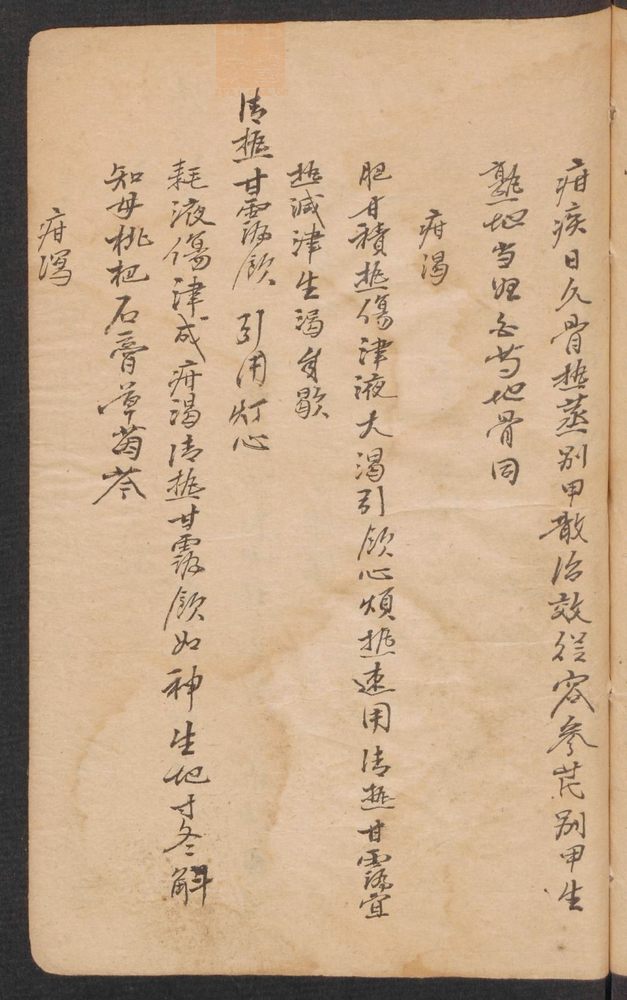 疳疾日久骨热蒸别甲散治效從容参芪别甲生
熟地当归白芍地骨同
疳渴
肥甘積热傷津液大渴引飲心煩热速用清热甘露宜
热減津生渴自歇
清热甘露飲 引用灯心
耗液傷津成疳渴清热甘露飲如神生地寸冬斛
知母枇杷石膏草茵芩
疳瀉